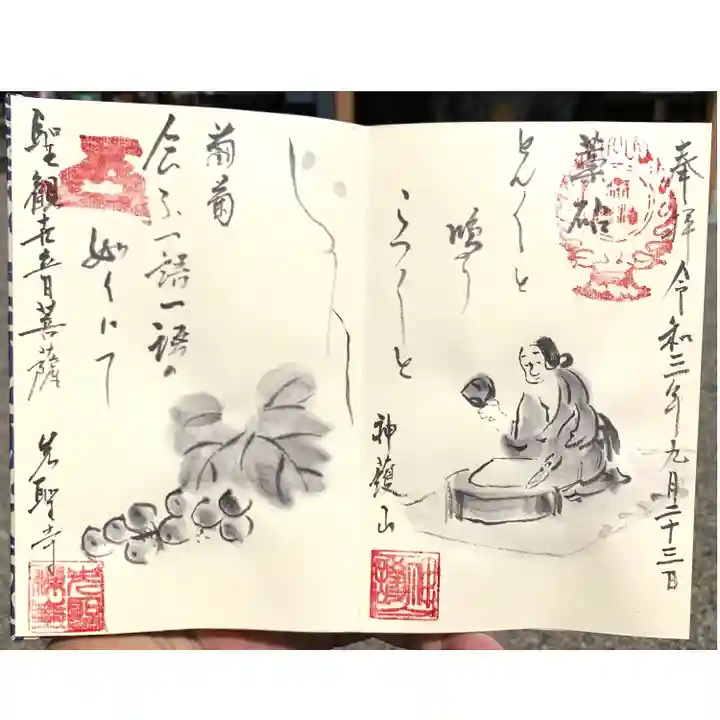 奉拝 令和三年九月二十三日
藁砧
とん〱と
鳴り
こつ〱と
神護山
葡萄
食ふ一語一語の
如くにて
聖観世音菩薩
光聖寺